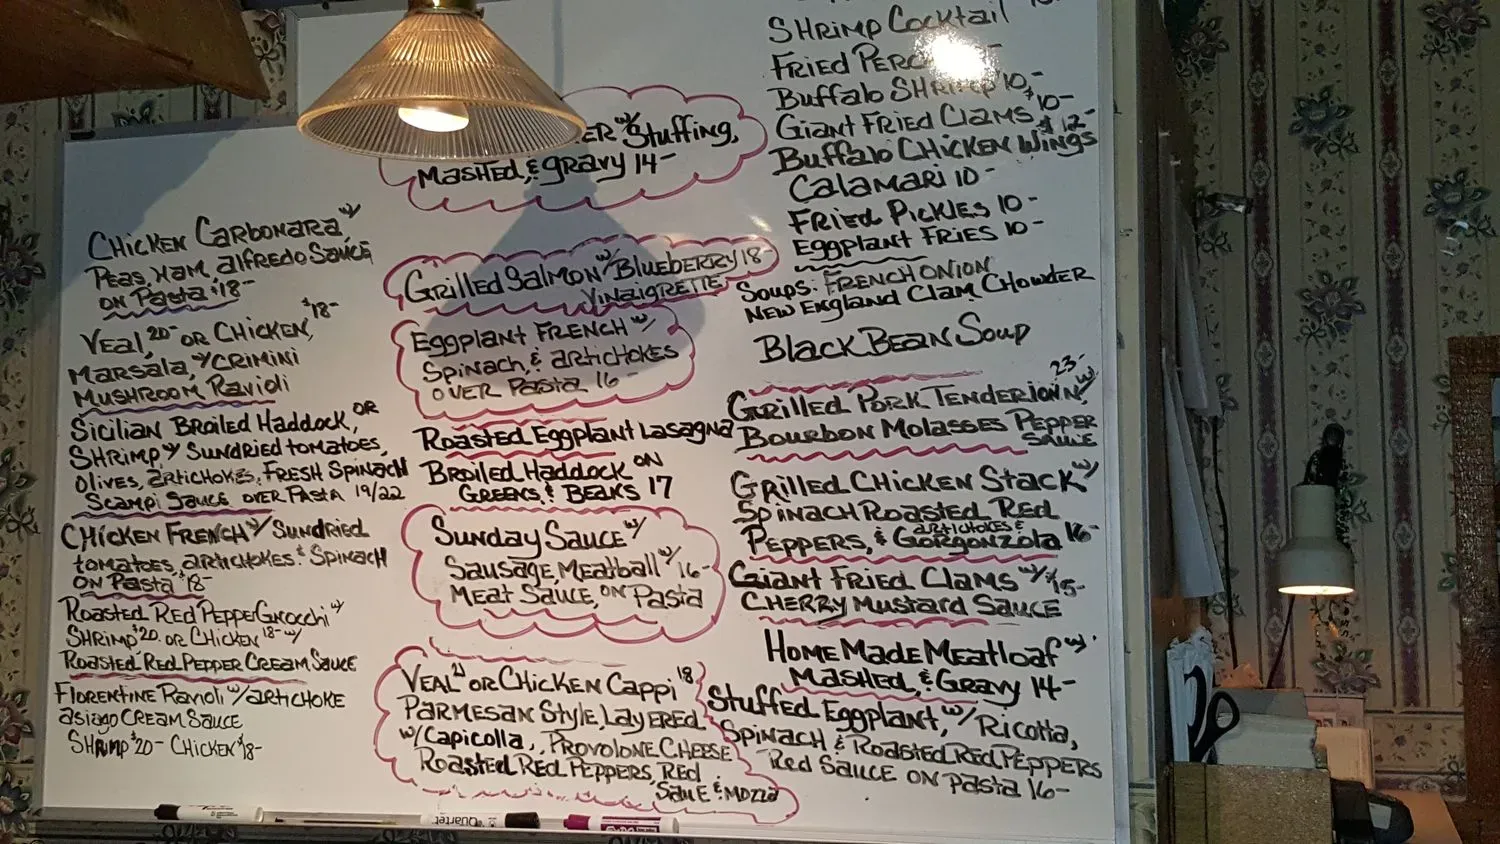 CHICKEN CARBONARA w/
PEAS, HAM, alfredo SAUCE
ON PASTA $18-
VEAL, 20- OR CHICKEN, $18-
MARSALA, w/CRIMINI
MUSHROOM RAVIOLI
SICILIAN BROILED HADDOCK, OR
SHRIMP w/ SUNDRIED TOMATOES,
OLIVES, ARTICHOKES, FRESH SPINACH
SCAMPI SAUCE OVER PASTA 19/22
CHICKEN FRENCH w/ SUNDRIED
tomatoes, ARTICHOKES & SPINACH
ON PASTA $18-
ROASTED RED PEPPER GNOCCHI w/
SHRIMP $20. OR CHICKEN 18- w/
ROASTED RED PEPPER CREAM SAUCE
FLORENTINE RAVIOLI w/ ARTICHOKE
asiago CREAM SAUCE
SHRIMP $20- CHICKEN $18-
ER w/ Stuffing,
MASHED, & GRAVY 14-
GRILLED SALMON w/ BLUEBERRY 18-
VINAIGRETTE
EGGPLANT FRENCH w/
SPINACH, & ARTICHOKES
OVER PASTA 16-
ROASTED EGGPLANT LASAGNA
BROILED HADDOCK ON
GREENS & BEANS 17
SUNDAY SAUCE w/
SAUSAGE, MEATBALL w/ 16-
MEAT SAUCE, ON PASTA
VEAL 21 OR CHICKEN CAPPI 18
PARMESAN STYLE, LAYERED
w/ CAPICOLLA, PROVOLONE CHEESE
ROASTED RED PEPPERS, RED
SAUCE & MOZZA
SHRIMP COCKTAIL
FRIED PERC
BUFFALO SHRIMP 10-
GIANT FRIED CLAMS $10-
BUFFALO CHICKEN WINGS $12-
CALAMARI 10-
FRIED PICKLES 10-
EGGPLANT FRIES 10-
SOUPS: FRENCH ONION
NEW ENGLAND CLAM CHOWDER
BLACK BEAN SOUP
GRILLED PORK TENDERIOIN w/ 23-
BOURBON MOLASSES PEPPER
SAUCE
GRILLED CHICKEN STACK w/
SPINACH ROASTED RED
PEPPERS, ARTICHOKES & & GORGONZOLA 16-
GIANT FRIED CLAMS w/ $15-
CHERRY MUSTARD SAUCE
HOME MADE MEATLOAF w/
MASHED, & GRAVY 14-
STUFFED EGGPLANT, w/ RICOTTA,
SPINACH & ROASTED RED PEPPERS
RED SAUCE ON PASTA 16-
Quartet